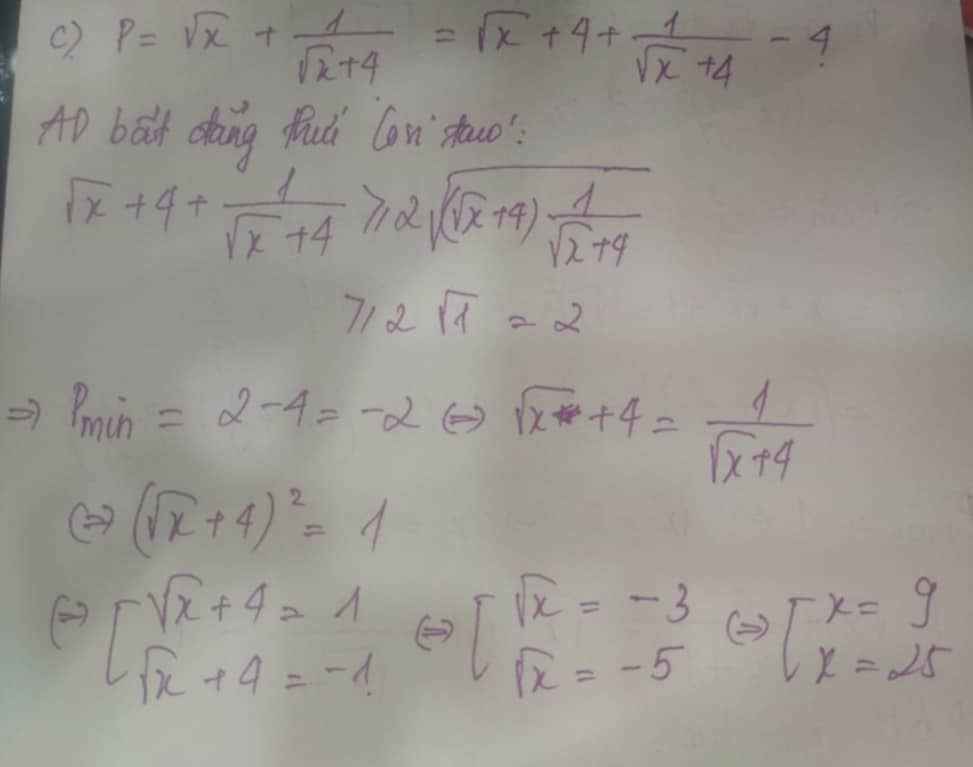 c) P = √x + 1/(√x+4) = √x + 4 + 1/(√x+4) - 4
AD bất đẳng thức Cosi ta có:
√x + 4 + 1/(√x+4) ⩾ 2√((√x+4) 1/(√x+4))
⩾ 2√1 = 2
⇒ Pmin = 2-4 = -2 ⇔ √x + 4 = 1/(√x+4)
⇔ (√x+4)² = 1
⇔ [ √x + 4 = 1 ⇔ [ √x = -3 ⇔ [ x = 9
√x + 4 = -1 √x = -5 x = 25